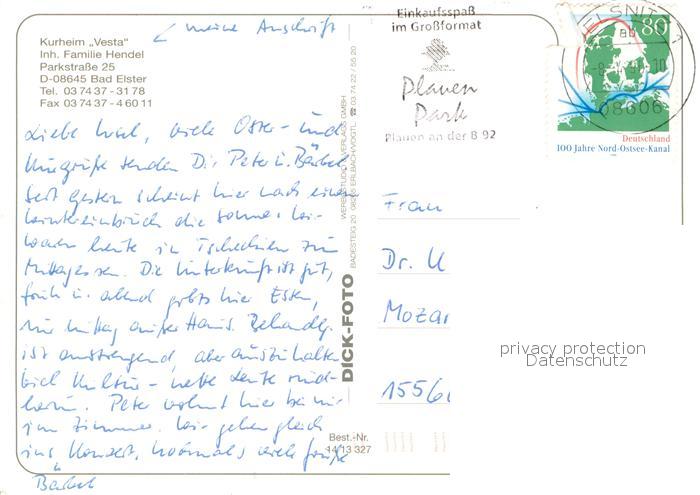 meine Anschrift
Kurheim „Vesta"
Inh. Familie Hendel
Parkstraße 25
D-08645 Bad Elster
Tel. 03 74 37 - 31 78
Fax 03 74 37 - 4 60 11
Liebe Insel, viele Oster- und
Kurgrüße senden Dir Peter u. Bärbel
Seit gestern scheint hier nach einem
Wintereinbruch die Sonne. Wir
waren heute in Tschechien zum
Mittagessen. Die Unterkunft ist gut,
früh u. abend gibts hier Essen,
nur mittag außer Haus. Behandlg.
ist anstrengend, aber auszuhalten
viel Kultur - nette Leute rund-
herum. Peter wohnt hier bei mir
im Zimmer. Wir gehen gleich
ins Konzert, nochmals viele Grüße
Bärbel
WERBESTUDIO & VERLAGS GMBH
BADESTEIG 20 08265 ERLBACH/VOGTL. ☎ 03 74 22 / 55 20
DICK-FOTO
Best.-Nr.
14 13 327
Einkaufsspaß
im Großformat
Plauen
Park
Plauen an der B 92
OELSNITZ
08606
80
Deutschland
100 Jahre Nord-Ostsee-Kanal
Frau
Dr. U
Mozar
1556
privacy protection
Datenschutz